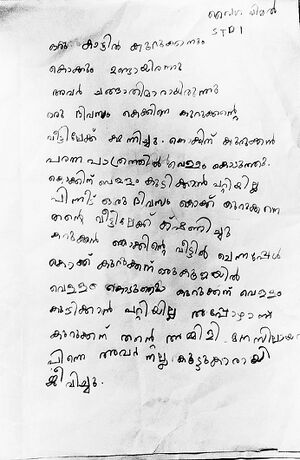 STD 1
ഒരു കാട്ടിൽ കുറുക്കനും
കൊക്കും ഉണ്ടായിരുന്നു
അവർ ചങ്ങാതിമാരായിരുന്നു
ഒരു ദിവസം കൊക്കിനെ കുറുക്കന്റെ
വീട്ടിലേക്ക് ക്ഷണിച്ചു. കൊക്കിന് കുറുക്കൻ
പരന്ന പാത്രത്തിൽ വെള്ളം കൊടുത്തു.
കൊക്കിന് വെള്ളം കുടിക്കാൻ പറ്റിയില്ല
പിന്നീട് ഒരു ദിവസം കൊക്ക് കുറുക്കനെ
തന്റെ വീട്ടിലേക്ക് ക്ഷണിച്ചു
കുറുക്കൻ കൊക്കിന്റെ വീട്ടിൽ ചെന്നപ്പോൾ
കൊക്ക് കുറുക്കന് കൂജയിൽ
വെള്ളം കൊടുത്തു കുറുക്കന് വെള്ളം
കുടിക്കാൻ പറ്റിയില്ല അപ്പോഴാണ്
കുറുക്കന് തന്റെ അമളി മനസിലായത്
പിന്നെ അവർ നല്ല കൂട്ടുകാരായി
ജീവിച്ചു.